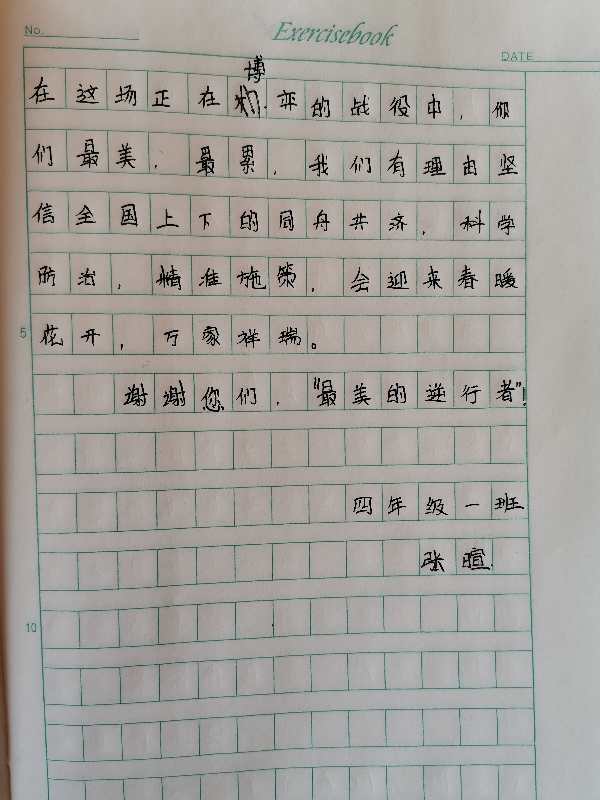 No.
Exercisebook
DATE
在这场正在博弈的战役中，你
们最美，最累，我们有理由坚
信全国上下的同舟共济，科学
防治，精准施策，会迎来春暖
5
花开，万家祥瑞。
谢谢您们，“最美的逆行者”！
四年级一班
张暄
10